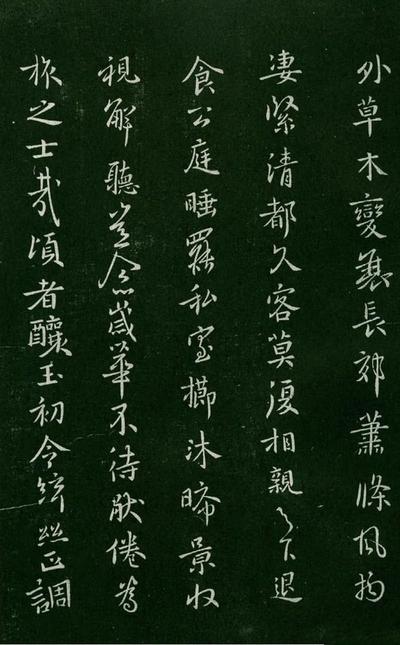 外草木變衰長郊蕭條風物
凄緊清都久客莫復相親下退
食公庭睡罷私室櫛沐晞景收
視解聽念歲華不待猒倦為
旅之士哉頃者釀玉初令絲正調